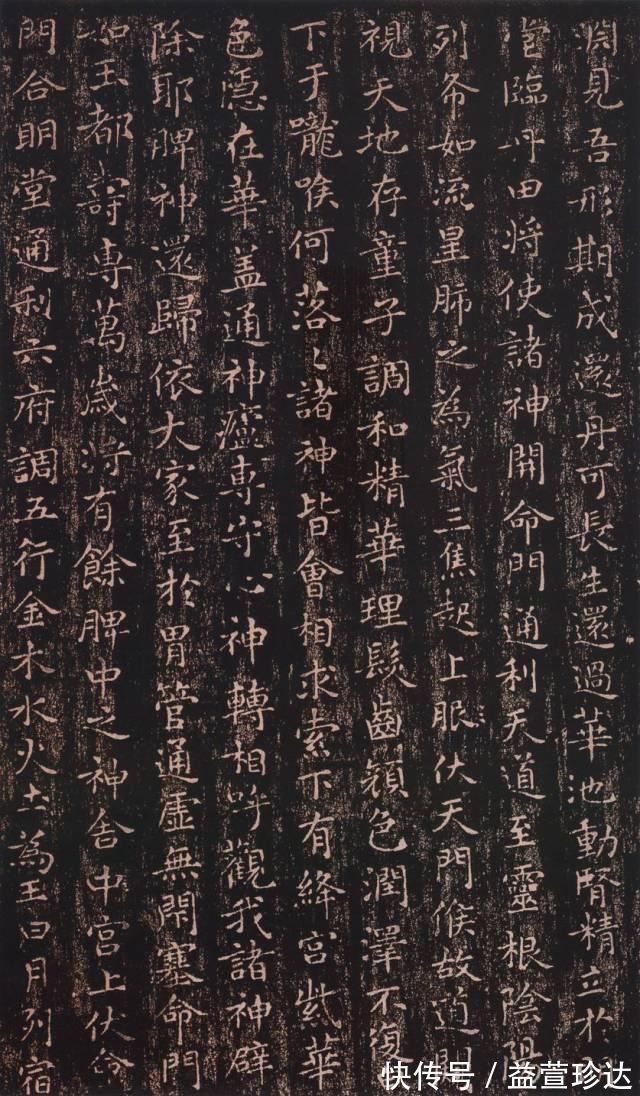 渕見吾形期成還丹可長生還過華池動腎精立於
堂臨丹田將使諸神開命門通利天道至靈根陰陽
列布如流星肺之為氣三焦起上服伏天門候故道
視天地存童子調和精華理髮齒顏色潤澤不復
下于嚨喉何落〻諸神皆會相求索下有絳宮紫華
色隱在華盖通神廬專守心神轉相呼觀我諸神辟
除耶脾神還歸依大家至於胃管通虛無閉塞命門
如玉都壽專萬歲將有餘脾中之神舍中宮上伏命
門合明堂通利六府調五行金木水火土為王日月列宿
快传号 / 益萱珍达